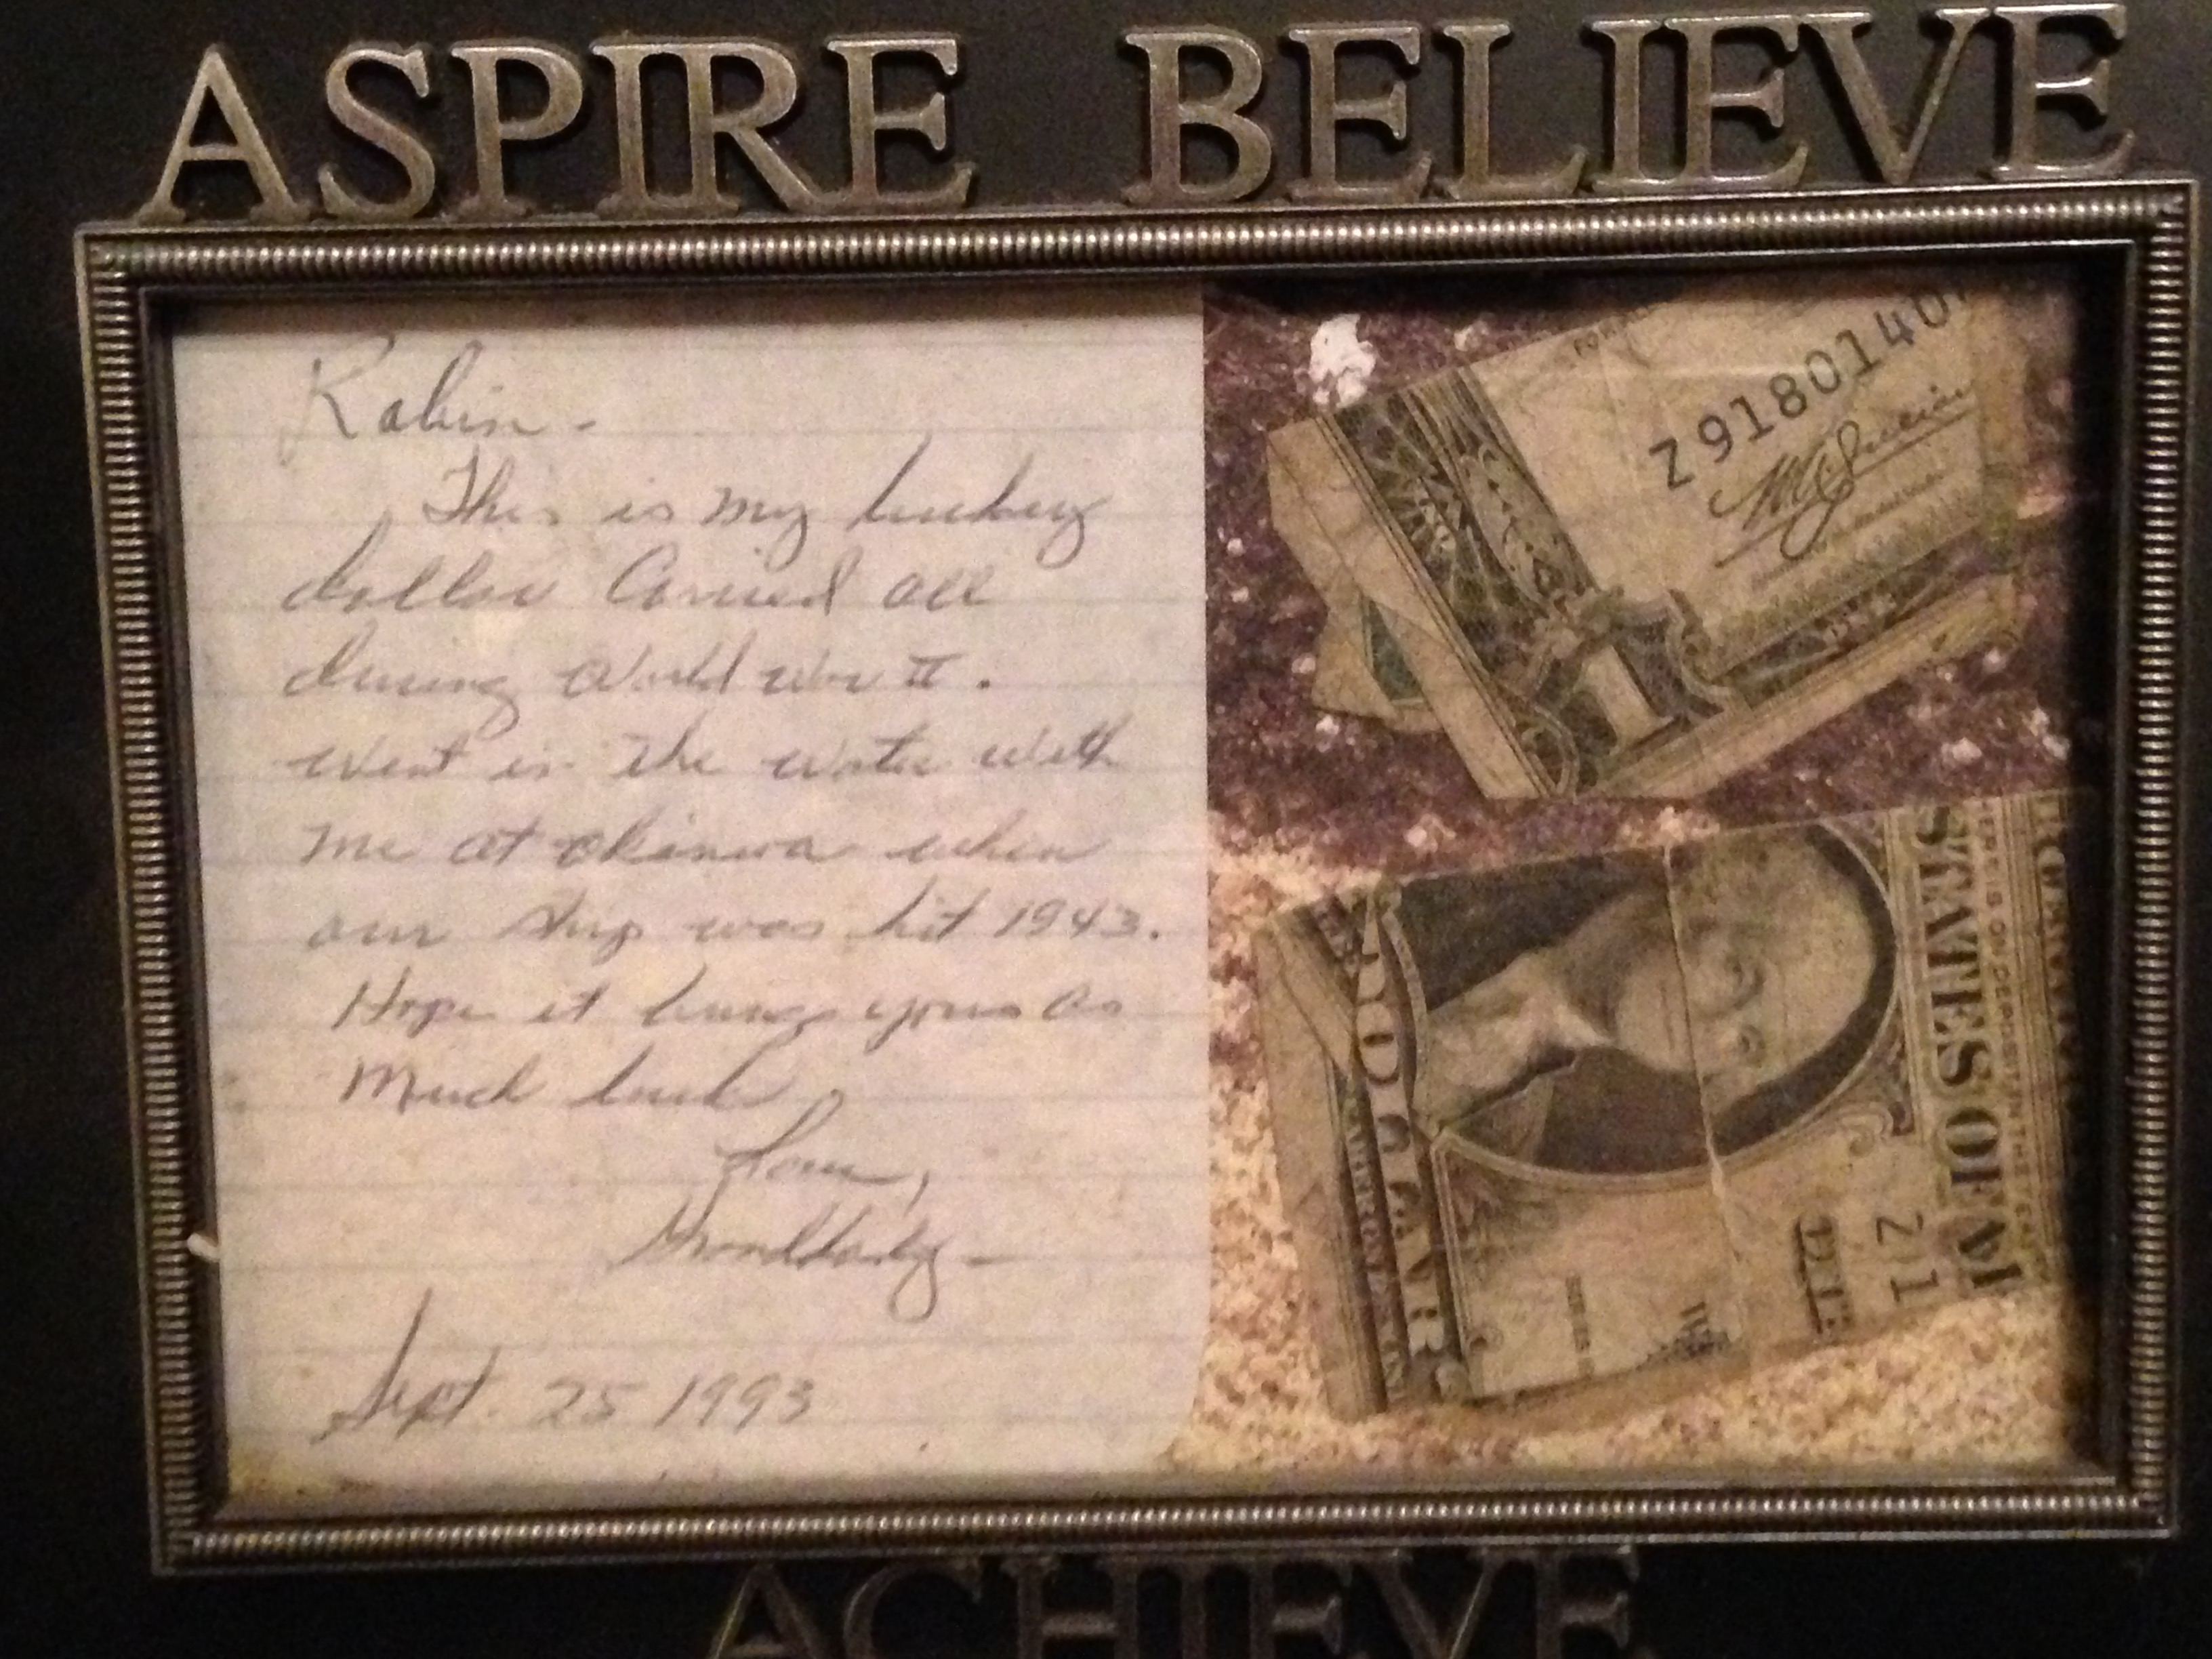 ASPIRE BELIEVE
Robin -
This is my lucky
dollar Carried all
during World War II.
Went in the water with
me at okinwa when
our ship was hit 1943.
Hope it brings you as
Much luck
Love,
Granddady -
Sept. 25 1993
Z9180140
1
STATES OF
21
ACHIEVE